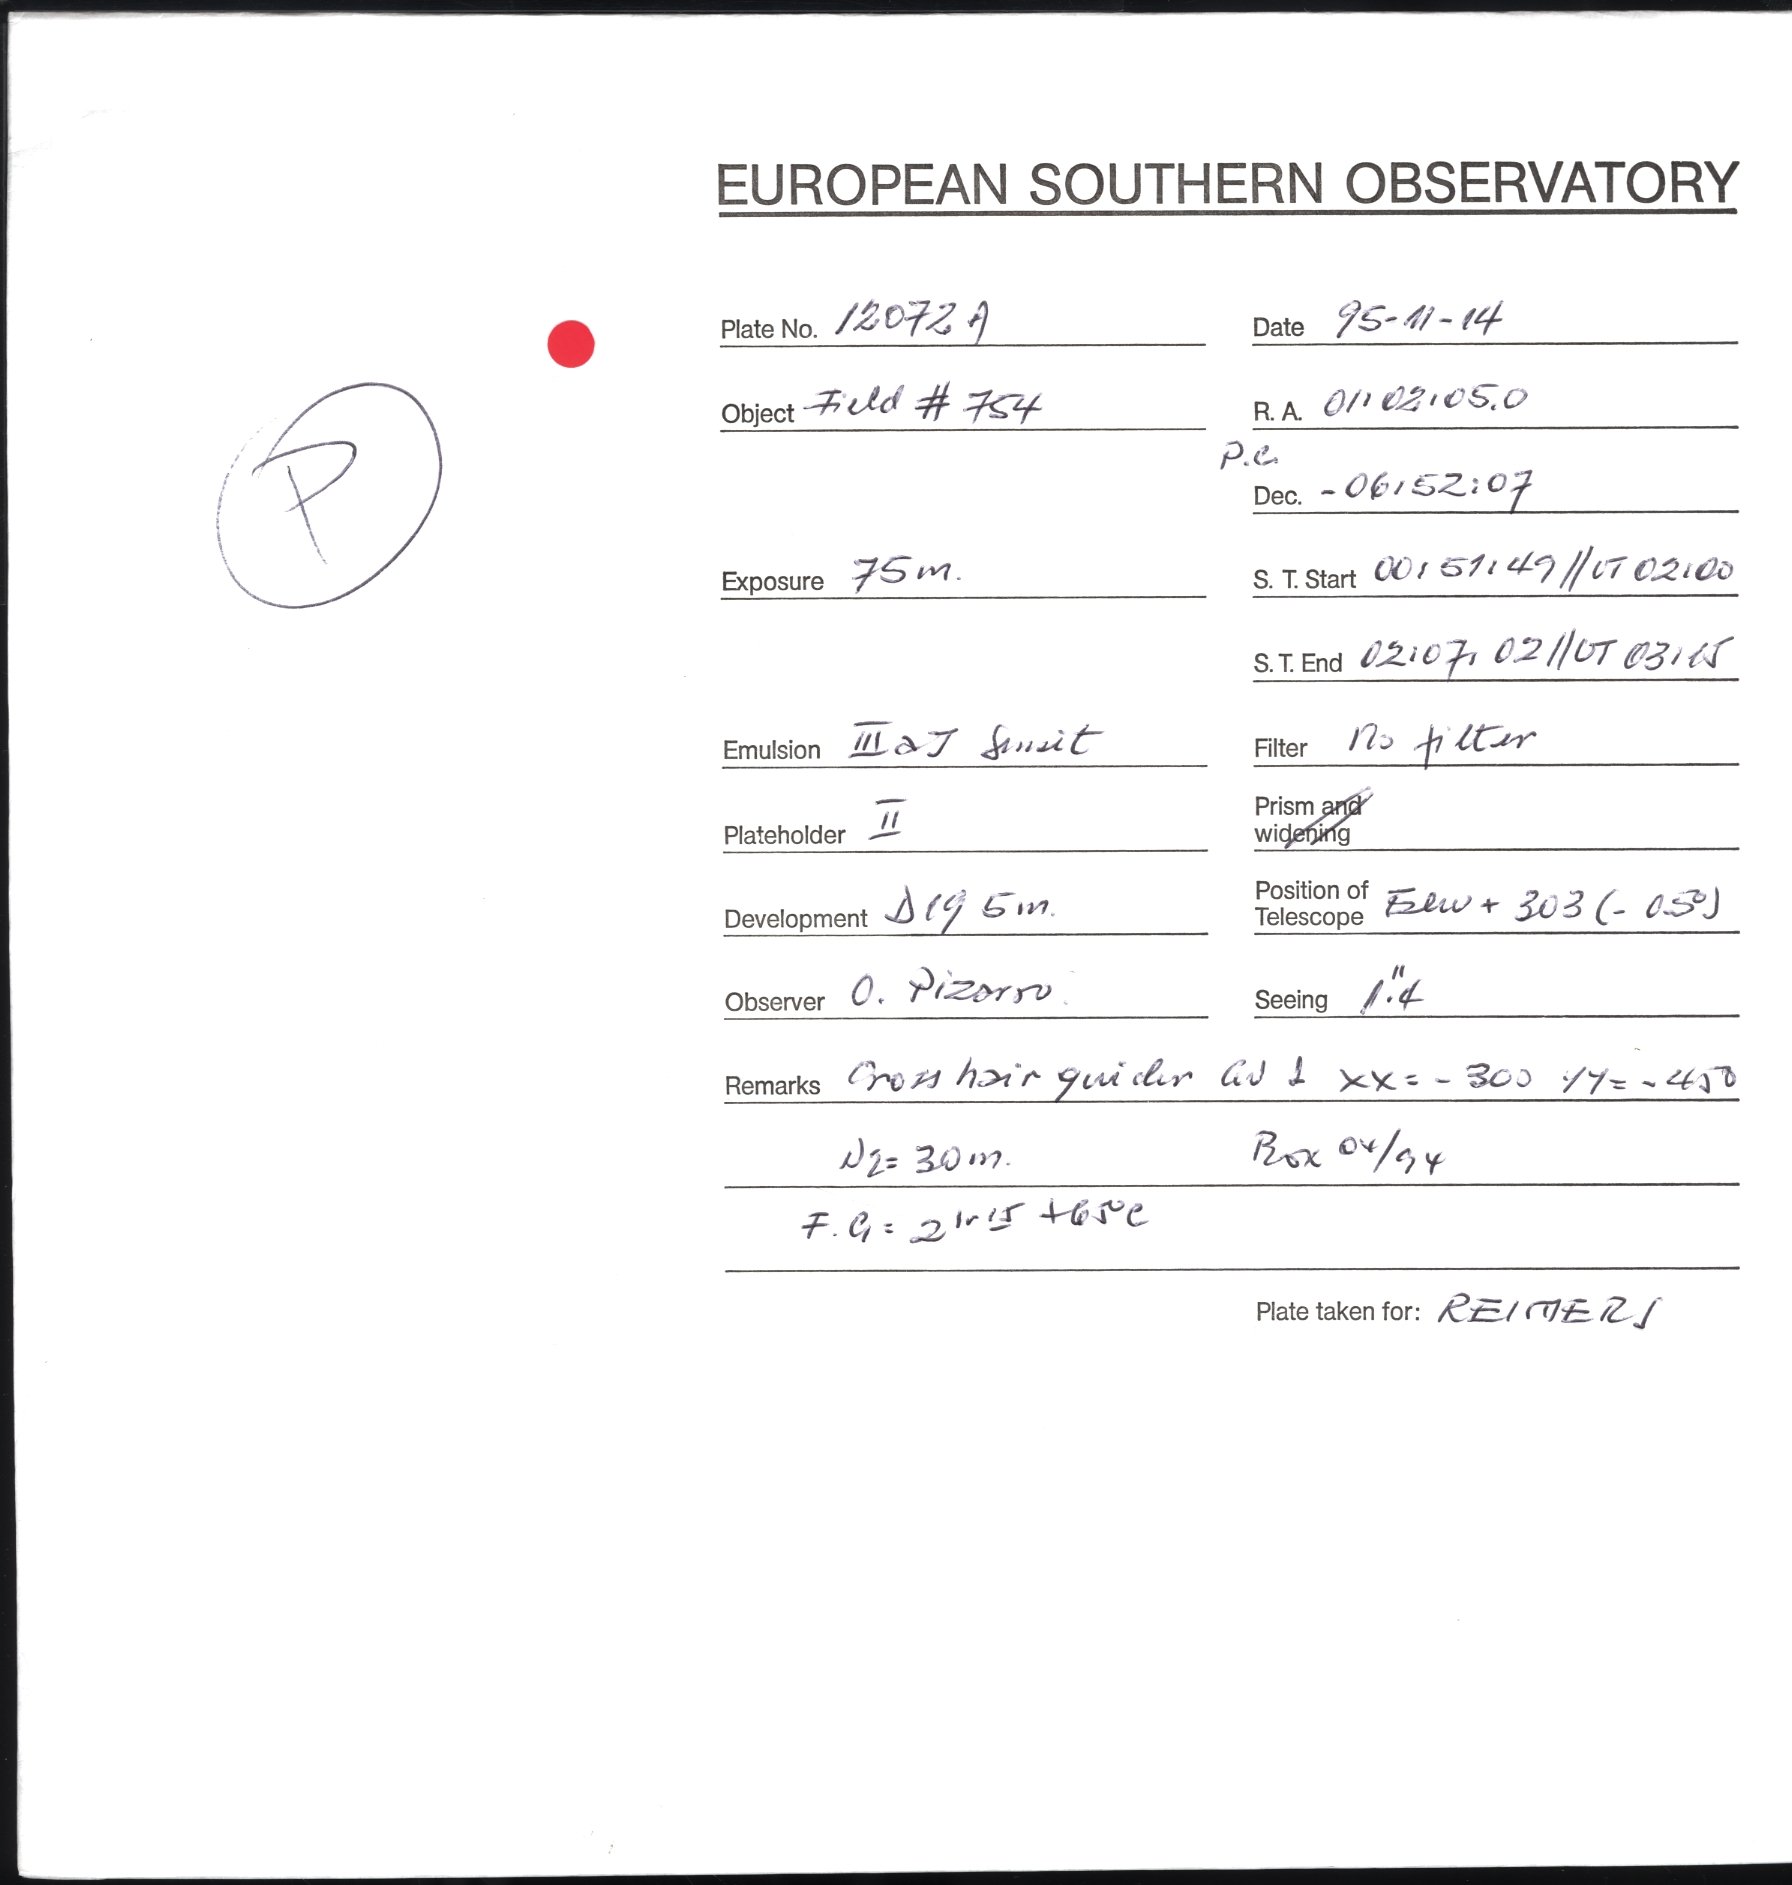 EUROPEAN SOUTHERN OBSERVATORY
Plate No. 12072 A
Date 95-11-14
Object Field # 754
R. A. 01:02:05.0
P
P.C.
Dec. -06:52:07
Exposure 75 m.
S. T. Start 00:51:49 // UT 02:00
S. T. End 02:07:02 // UT 03:15
Emulsion III a J Sensit
Filter No filter
Plateholder II
Prism and
widening
Development D19 5 m.
Position of
Telescope + 303 (- 0.5°)
Observer O. Pizarro
Seeing 1".4
Remarks Cross hair guider XX = - 300 YY = - 450
N2 = 30 m. Box 04/94
F.G = 2 hr 15 +65°C
Plate taken for: REIMERS